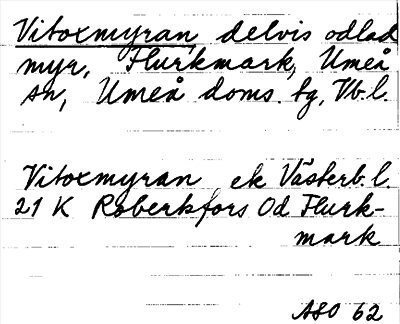 Vitoxmyran, delvis odlad
myr, Flurkmark, Umeå
sn, Umeå doms. tg, Vb. l.
Vitoxmyran ek Västerb. l.
21 K Robertsfors Od Flurk-
mark
ASO 62